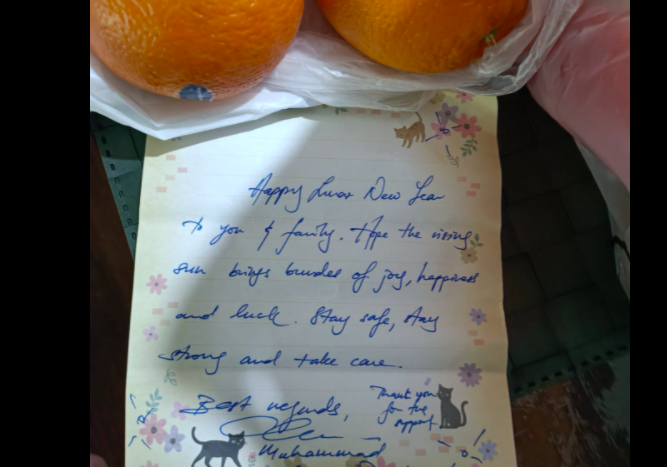 Happy Lunar New Year
to you & family. Hope the rising
sun brings bundles of joy, happiness
and luck. Stay safe, stay
strong and take care.
Best regards,
Thank you
for the
support
Muhammad